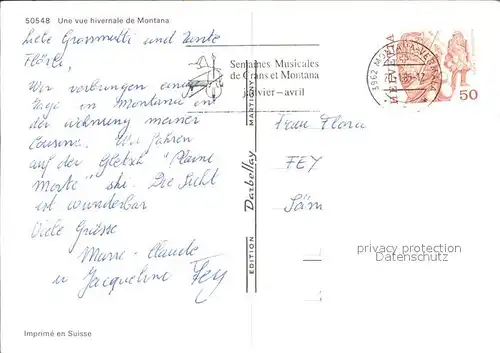 50548 Une vue hivernale de Montana
Liebe Grossmutti und Tante
Flörli,
Wir verbringen einige
Tage in Montana in
der Wohnung meiner
Cousine. Wir fahren
auf der Gletsch "Plaine
Morte" ski. Die Sicht
ist wunderbar
Viele Grüsse
Marie-Claude
u Jacqueline Fey
Imprimé en Suisse
EDITION Darbellay MARTIGNY
Semaines Musicales
de Crans et Montana
janvier - avril
3962 MONTANA-VERMALA
HELVETIA
50
Frau Flora
FEY
privacy protection
Datenschutz